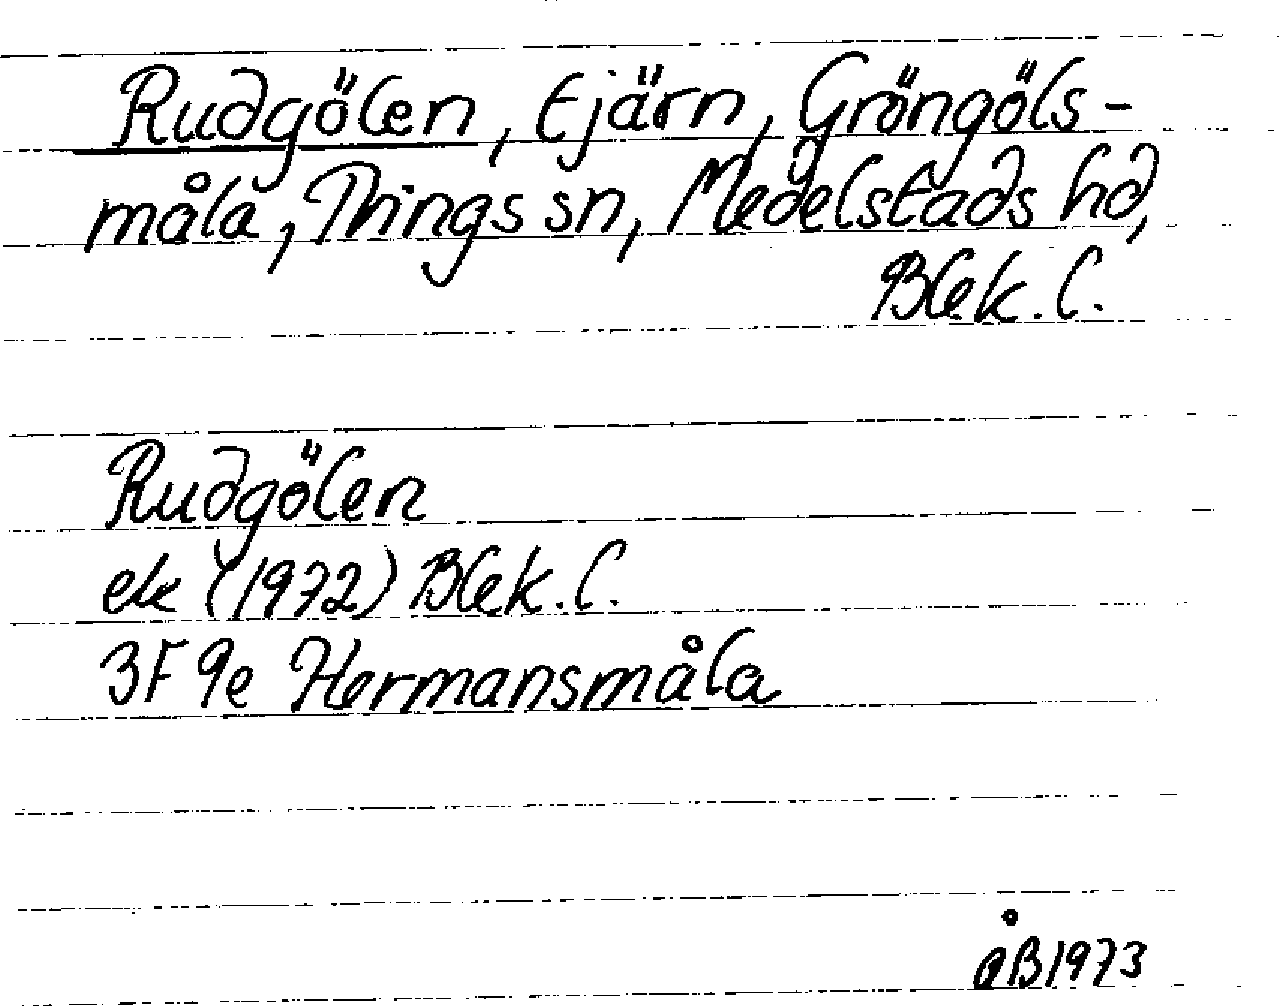 Rudgölen, tjärn, Gröngöls-
måla, Tvings sn, Medelstads hd,
Blek. l.
Rudgölen
ek (1972) Blek. l.
3F 9e Hermansmåla
ÅB 1973